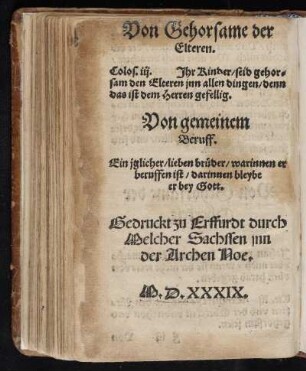 Von Gehorsame der
Elteren.
Colos. iij. Ihr Kinder/seid gehor-
sam den Elteren jnn allen dingen/denn
das ist dem Herren gefellig.
Von gemeinem
Beruff.
Ein jglicher/lieben brüder/warinnen er
beruffen ist/darinnen bleybe
er bey Gott.
Gedruckt zu Erffurdt durch
Melcher Sachssen jnn
der Archen Noe.
M. D. XXXIX.